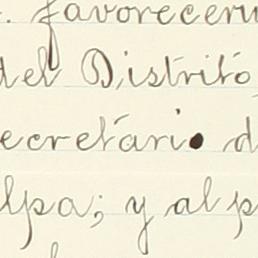 . favoreceru
del Distrito
ecretario d
lpa; y al p